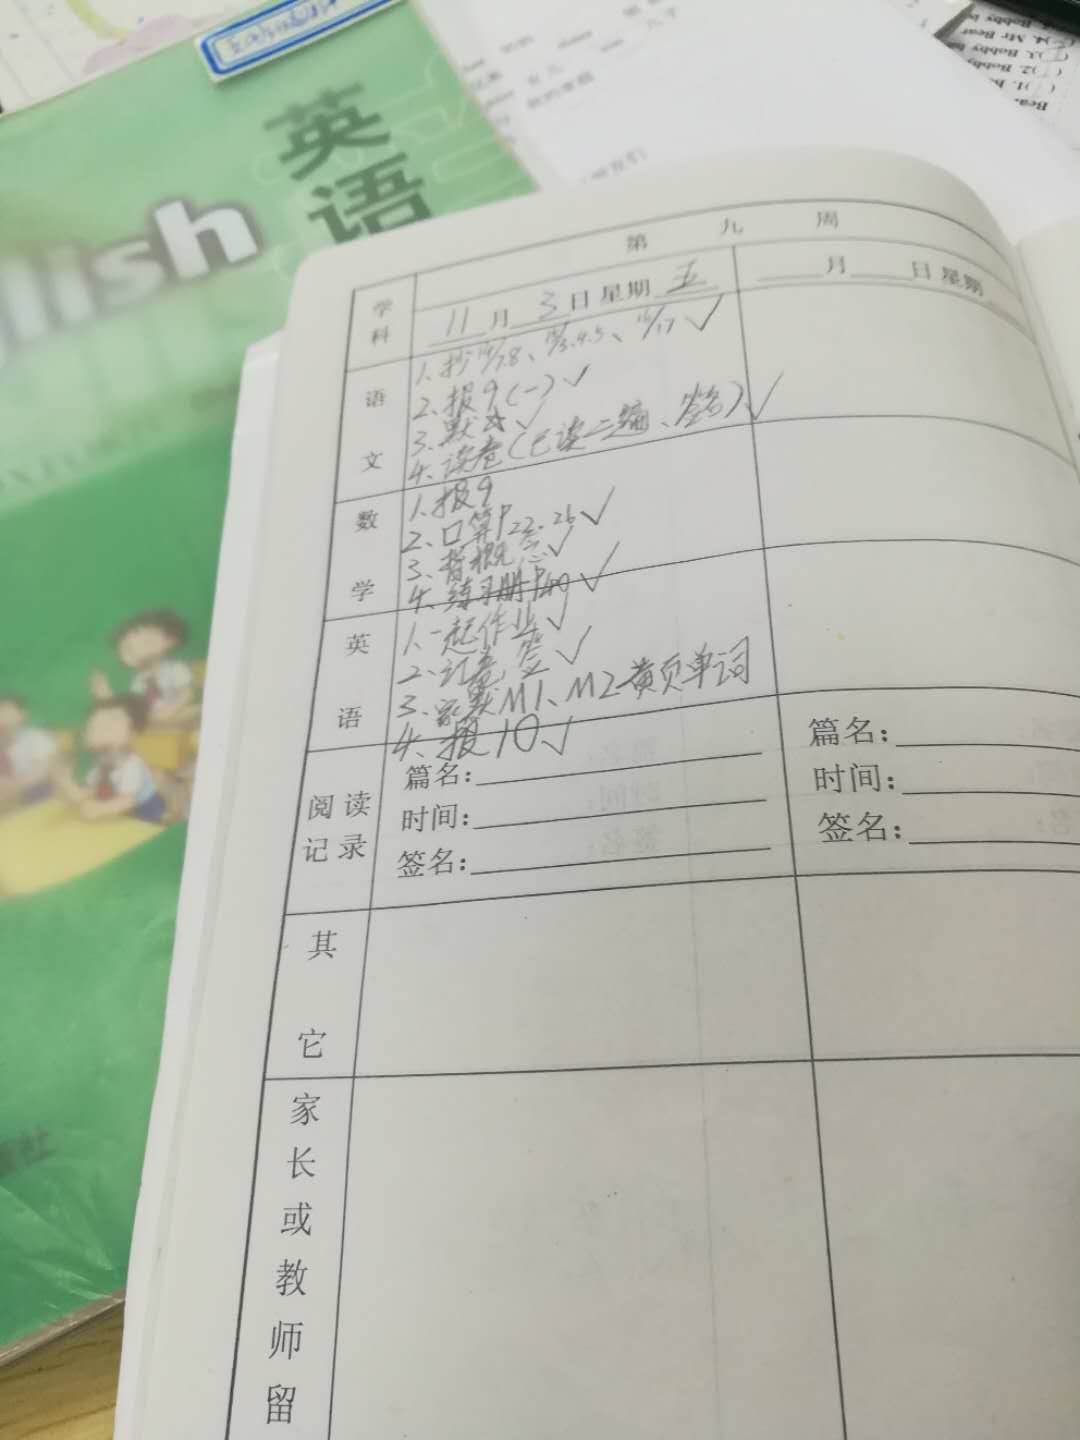 英语
lish
第九周
学科
11月3日星期五
月 日星期
语文
1、抄14/7.8、15/3.4.5、16/17✓
2、报9(一)✓
3、默☆✓
4、读卷(已读二遍、签名)✓
数学
1、报9
2、口算P22-26✓
3、背概念✓
4、练习册P40✓
英语
1、一起作业✓
2、订卷 签✓
3、家默M1、M2黄页单词
4、报10✓
阅读记录
篇名: 篇名:
时间: 时间:
签名: 签名:
其它
家长或教师留